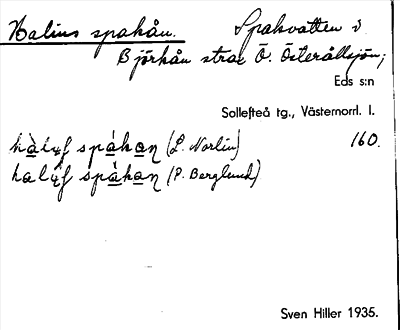 Halins spakån. Spakvatten i
Björkån strax Ö. Österållsjön;
Eds s:n
Sollefteå tg., Västernorrl. l.
spákan (L. Norlin) 160.
spákan (P. Berglund)
Sven Hiller 1935.